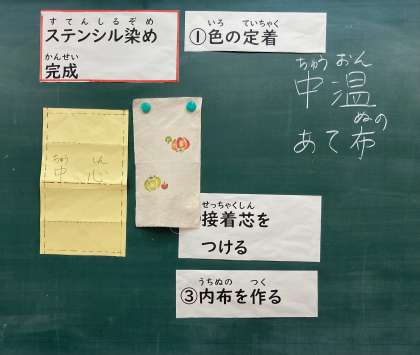 すてんしるぞめ
ステンシル染め
かんせい
完成
いろ ていちゃく
①色の定着
ちゅうおん
中温
ぬの
あて布
ちゅう しん
中心
せっちゃくしん
接着芯を
つける
うちぬの つく
③内布を作る